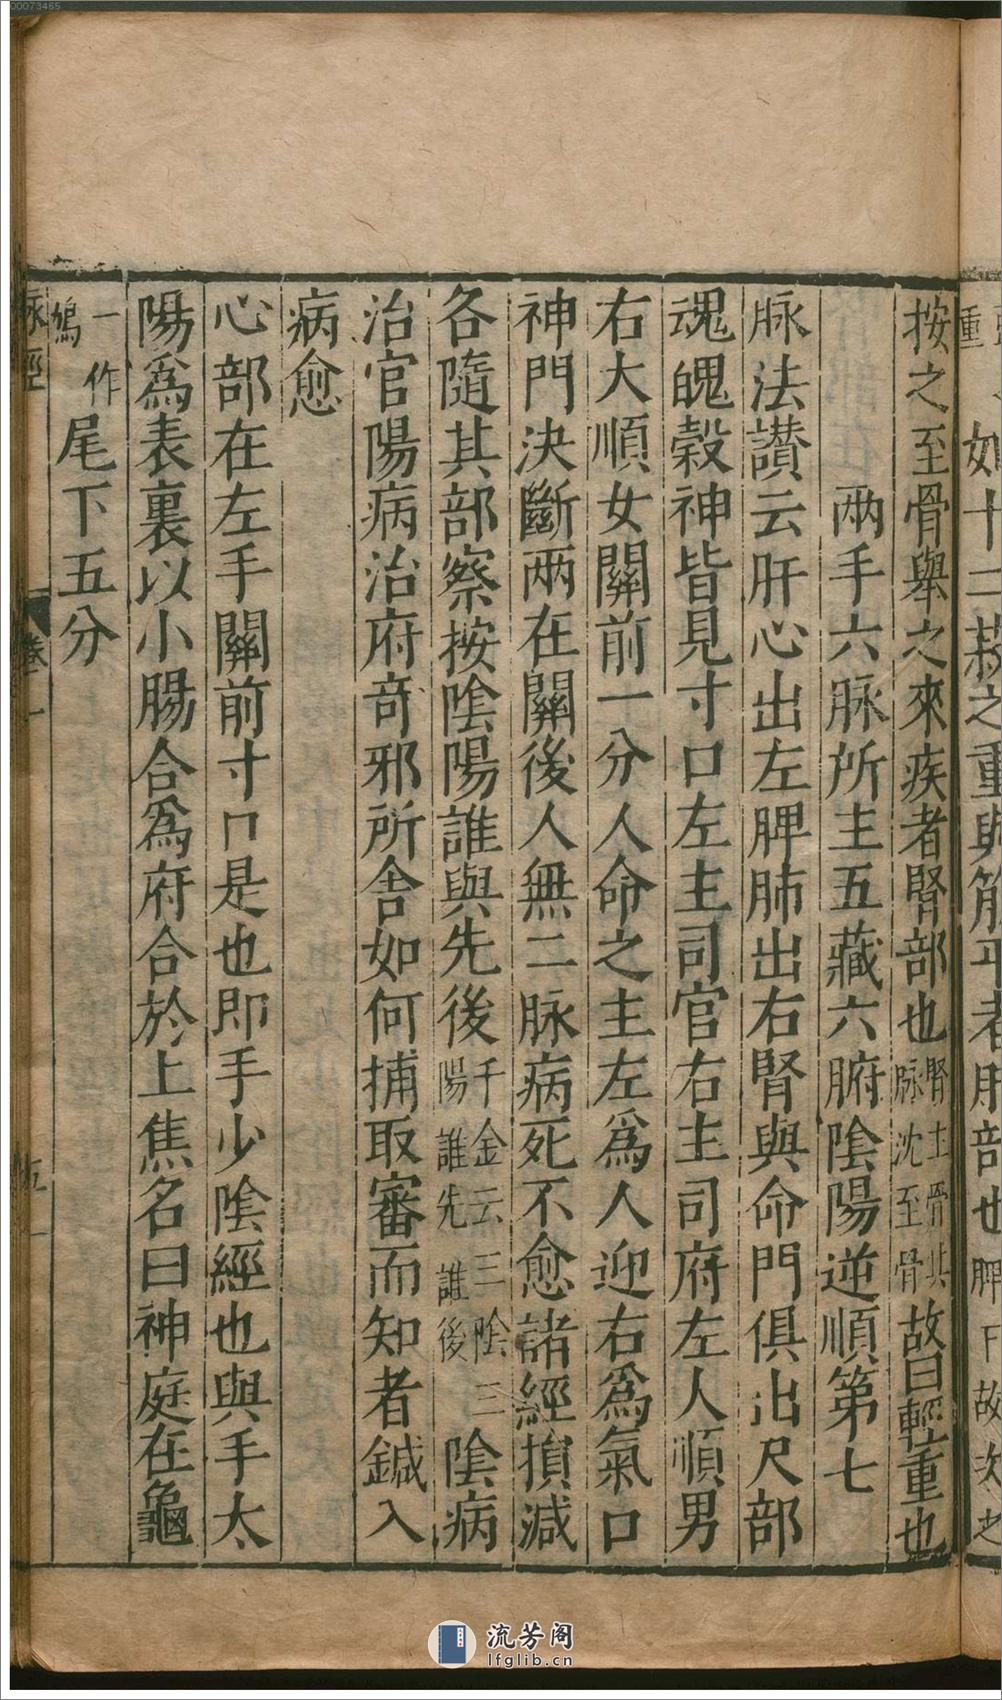 如十二菽之重與筋平者肝部也
按之至骨舉之來疾者腎部也腎主骨其脉沈至骨故曰輕重也
兩手六脉所主五藏六腑陰陽逆順第七
脉法讃云肝心出左脾肺出右腎與命門俱出尺部
魂魄穀神皆見寸口左主司官右主司府左人順男
右大順女關前一分人命之主左爲人迎右爲氣口
神門決斷兩在關後人無二脉病死不愈諸經損減
各隨其部察按陰陽誰與先後千金云三陰三陽誰先誰後陰病
治官陽病治府奇邪所舍如何捕取審而知者鍼入
病愈
心部在左手關前寸口是也即手少陰經也與手太
陽爲表裏以小腸合爲府合於上焦名曰神庭在龜
一作鳩尾下五分
脉經 卷一 五
00073465
流芳阁
lfglib.cn